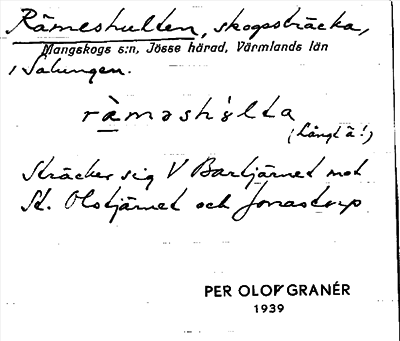 Rämeshulten, skogssträcka,
Mangskogs s:n, Jösse härad, Värmlands län
i Salungen.
rä̀məshúlta
(Långt ä!)
sträcker sig V Bartjärnet mot
St. Olstjärnet och Jonastorp
PER OLOF GRANÉR
1939